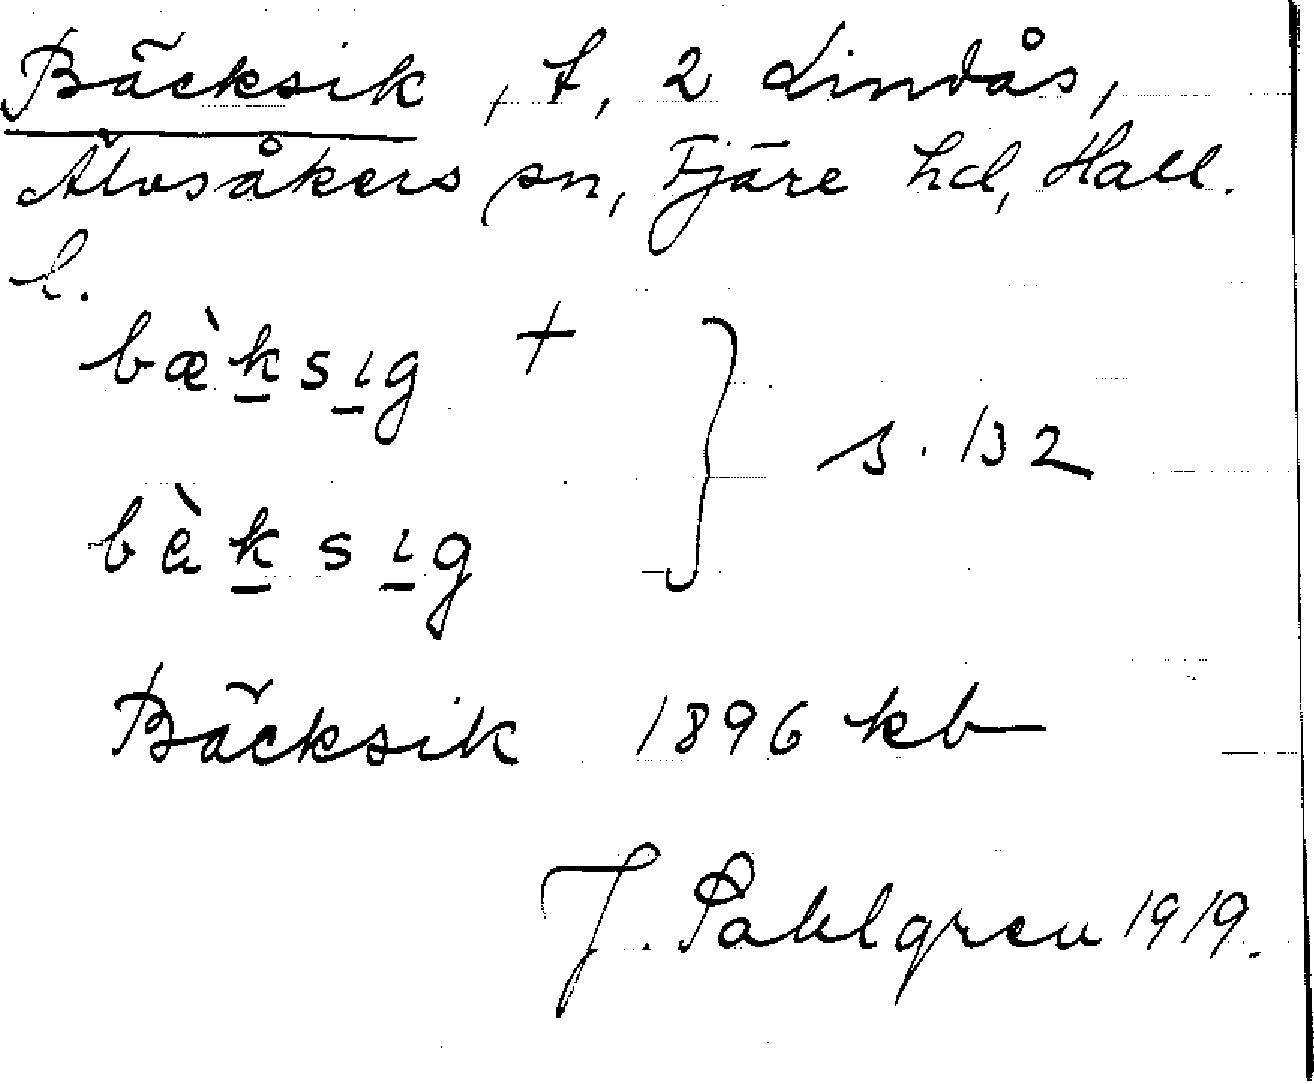 Bäcksik, t, 2 Lindås,
Älvsåkers sn, Fjäre hd, Hall.
l.
bæ̀ksıg +
bàksıg
s. 132
Bäcksik 1896 kb
J. Sahlgren 1919.